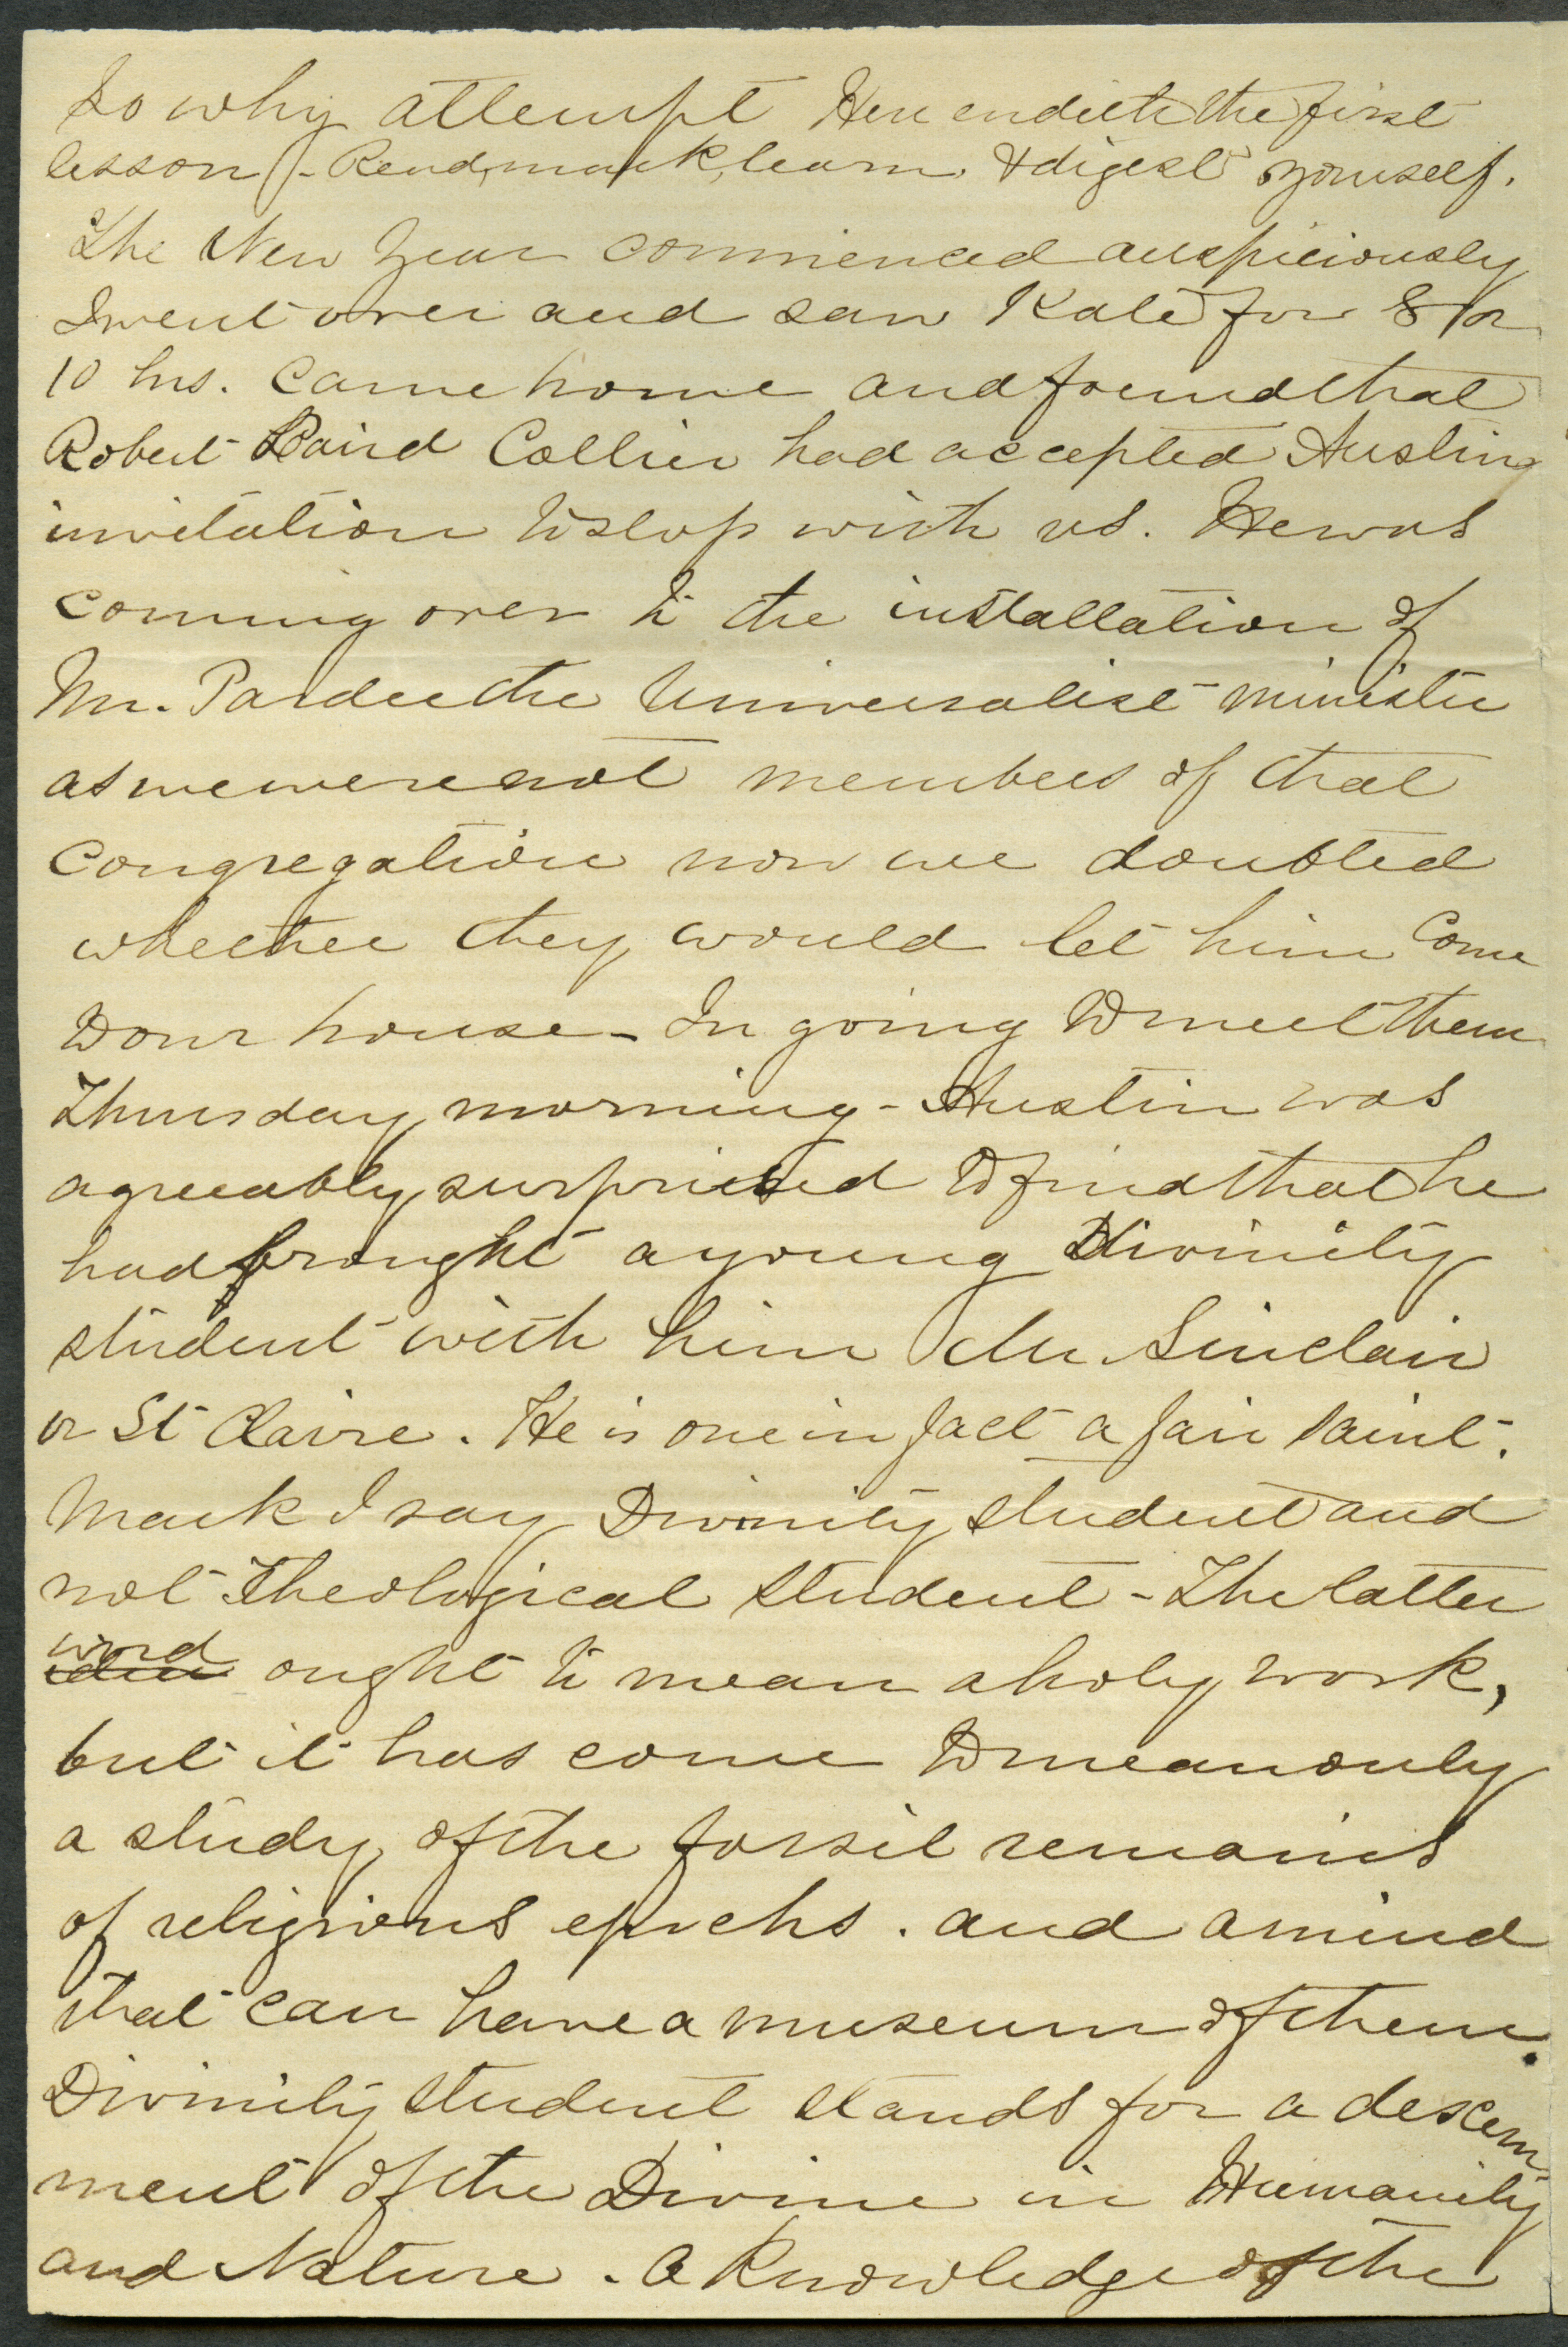 So why attempt Here endeth the first
lesson - Read, mark, learn, & digest yourself.
The New Year commenced auspiciously
I went over and saw Kate for 8 or
10 hrs. Came home and found that
Robert Laird Collier had accepted Austin
invitation to stop with us. He was
coming over to the installation of
Mr. Pardee the Universalist minister
as we were not members of that
congregation now we doubted
whether they would let him come
to our house - In going to meet them
Thursday morning - Austin was
agreeably surprised to find that he
had brought a young Divinity
student with him Mr. Sinclair
or St Claire. He is one in fact a fair saint.
Mark I say Divinity student and
not Theological student - The latter
word ought to mean a holy work,
but it has come to mean only
a study of the fossil remains
of religious epochs. and a mind
that can have a museum of them.
Divinity student stands for a descern
ment of the Divine in Humanity
and Nature. A knowledge of the